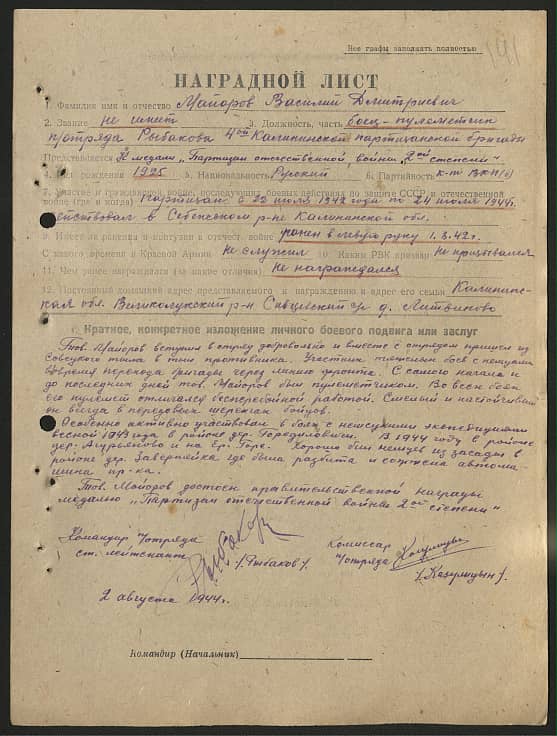 Все графы заполнять полностью
191
НАГРАДНОЙ ЛИСТ
1. Фамилия имя и отчество Майоров Василий Дмитриевич
2. Звание не имеет 3. Должность, часть боец-пулеметчик
отряда Рыбакова 4ой Калининской партизанской бригады
Представляется К медали „Партизан отечественной войны 2ой степени"
4. Год рождения 1925 5. Национальность Русский 6. Партийность к-т ВКП(б)
7. Участие в гражданской войне, последующих боевых действиях по защите СССР и отечественной
войне (где и когда) Партизан с 22 июля 1942 года по 24 июля 1944г.
действовал в Себежском р-не Калининской обл.
8. Имеет ли ранения и контузии в отечест. войне ранен в левую руку 1.8.42г.
С какого времени в Красной Армии Не служил 10. Каким РВК призван не призывался
11. Чем ранее награждался (за какие отличия) Не награждался
12. Постоянный домашний адрес представляемого к награждению и адрес его семьи Калининс-
кая обл. Великолукский р-н д. Литвиново
I. Краткое, конкретное изложение личного боевого подвига или заслуг
Тов. Майоров вступил в отряд добровольно и вместе с отрядом пришел из
Советского тыла в тыл противника. Участник тяжелых боев с немцами
вовремя перехода бригады через линию фронта. С самого начала и
до последних дней тов. Майоров был пулеметчиком. Во всех боях
его пулемет отличался бесперебойной работой. Смелый и настойчивый
он всегда в передовых шеренгах бойцов.
Особенно активно участвовал в боях с немецкими экспедициями
весной 1943 года в районе дер. В 1944 году в районе
дер. и на Хорошо бил немцев из засады в
районе дер. где была разбита и сожжена автома-
шина пр-ка.
Тов. Майоров достоен правительственной награды
медалью „Партизан отечественной войны 2ой степени"
Командир отряда
ст. лейтенант Рыбаков /Рыбаков/.
Комиссар
отряда
2 августа 1944г.
Командир (Начальник)